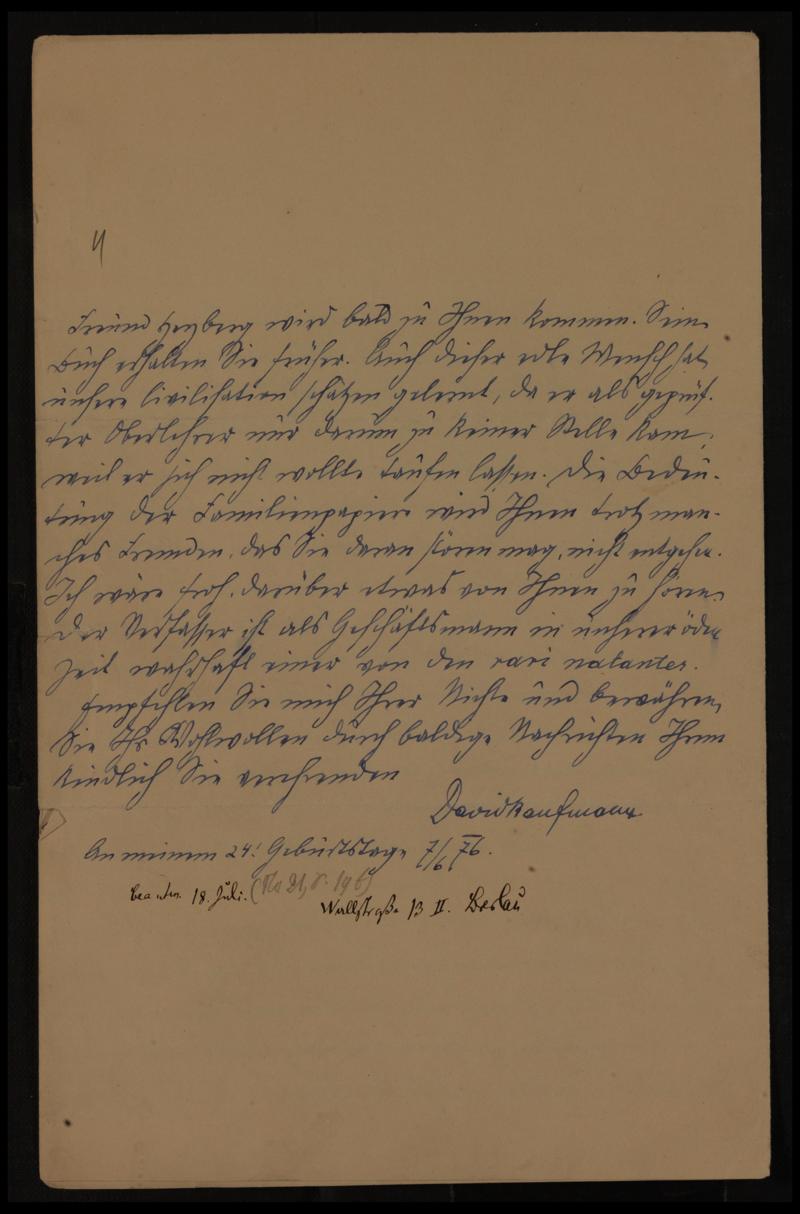 4
Freund Herzberg wird bald zu Ihnen kommen. Sein
Buch erhalten Sie früher. Auch dieser edle Mensch hat
unsere Civilisation schätzen gelernt, da er als geprüf-
ter Oberlehrer nur darum zu keiner Stelle kam,
weil er sich nicht wollte taufen lassen. Die Bedeu-
tung der Familienpapiere wird Ihnen trotz man-
ches Fremden, das Sie daran stören mag, nicht entgehen.
Ich wäre froh, darüber etwas von Ihnen zu hören.
Der Verfasser ist als Geschäftsmann in unserer öden
Zeit wahrhaft einer von den rari nantes.
Empfehlen Sie mich Ihrer Nichte und bewähren
Sie Ihr Wohlwollen durch baldige Nachrichten Ihrem
kindlich Sie verehrenden
David Kaufmann
An meinem 24. Geburtstage 7/6 76.
beantw. 18. Juli. (No 21, S. 196)
Wallstraße 13 II. Breslau